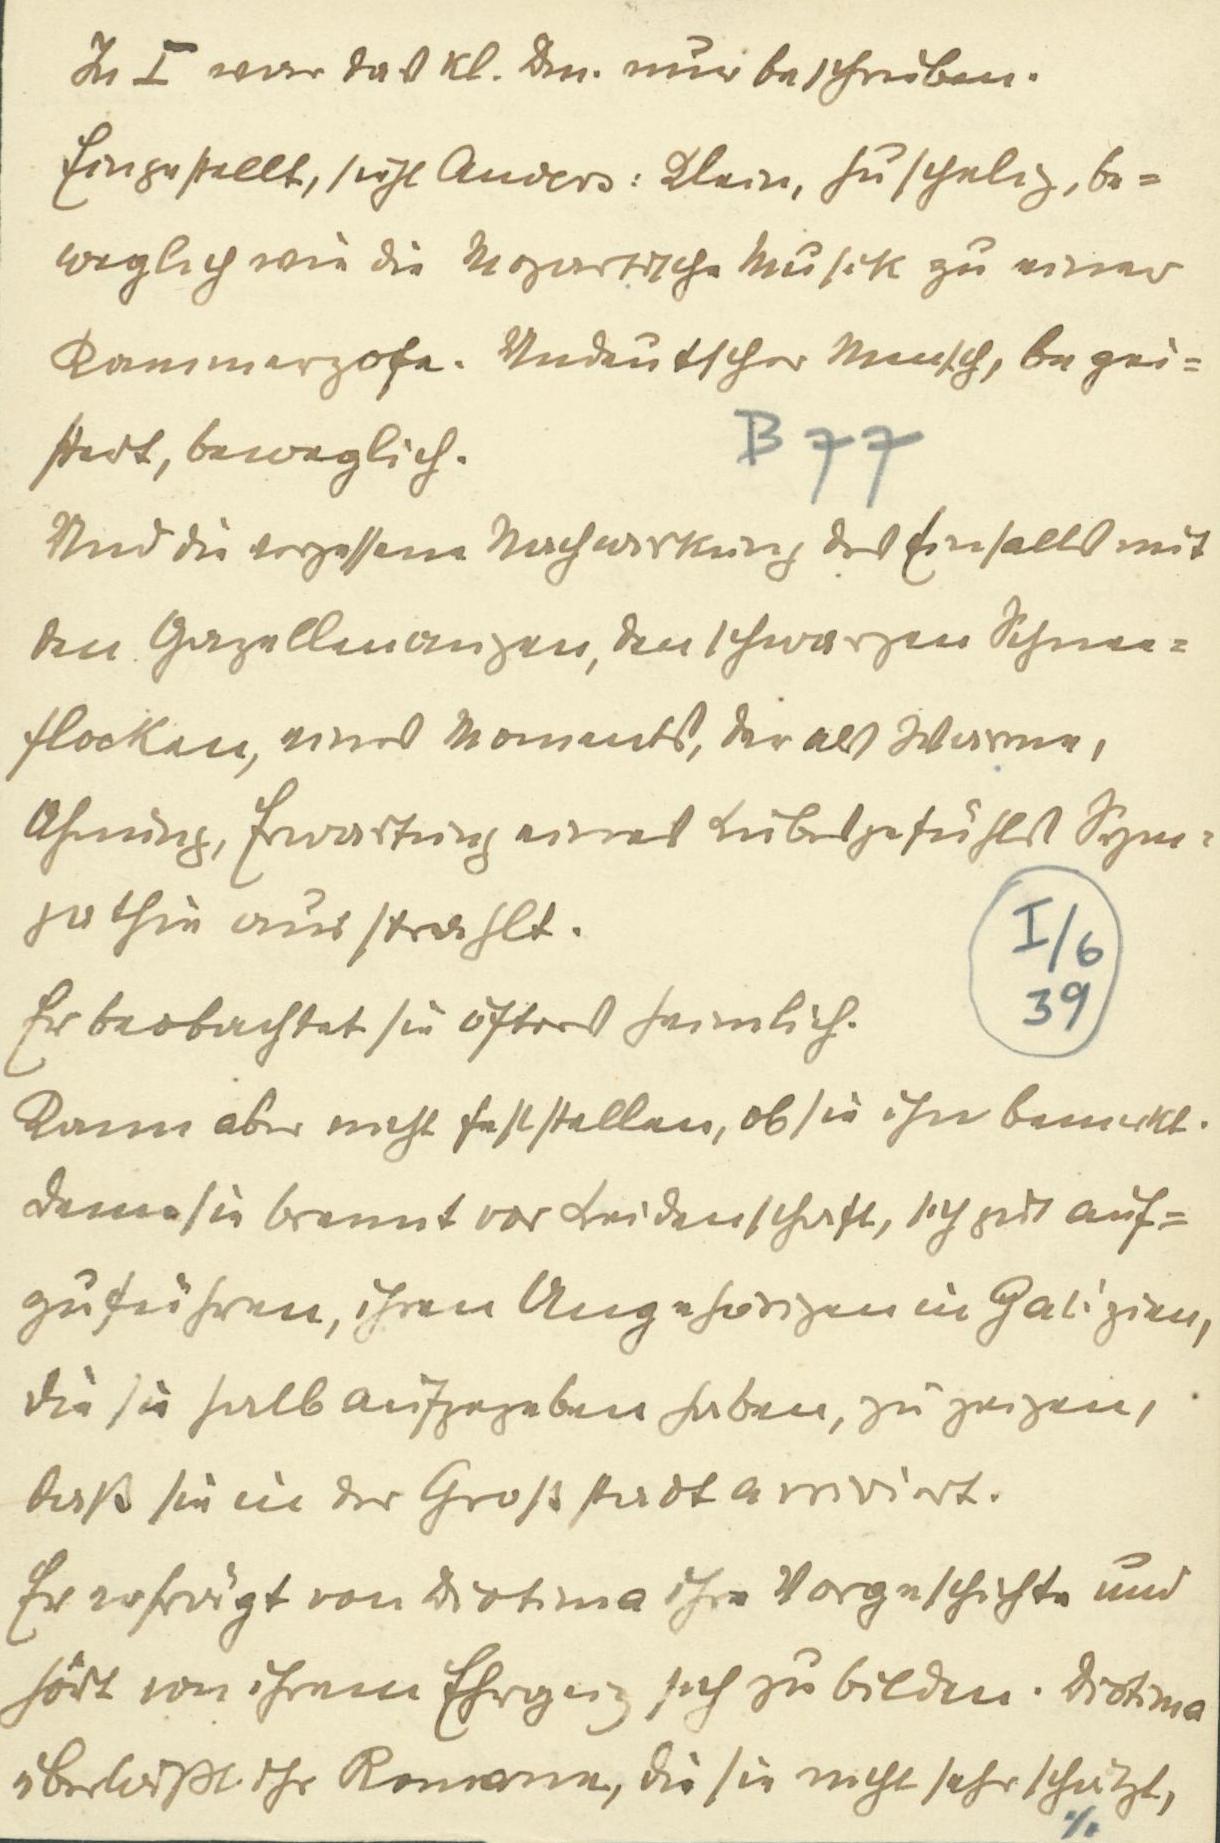 In I war das kl. Dm. nur beschrieben.
Eingestellt, sieht Anders: Klein, huschelig, be=
weglich wie die Mozartische Musik zu einer
Kammerzofe. Undeutscher Mensch, begei=
stert, beweglich.
B 77
Und die vergessene Nachwirkung des Einfalls mit
den Gazellenaugen, den schwarzen Schnee=
flocken, eines Moments, der als Wärme,
Ahnung, Erwartung eines Liebesgefühls Sym=
pathie ausstrahlt.
I/6
39
Er beobachtet sie öfters heimlich.
Kann aber nicht feststellen, ob sie ihn bemerkt.
Denn sie brennt vor Leidenschaft, sich gut auf=
zuführen, ihren Angehörigen in Galizien,
die sie halb aufgegeben haben, zu zeigen,
daß sie in der Großstadt arriviert.
Er erfrägt von Diotima ihre Vorgeschichte und
hört von ihrem Ehrgeiz sich zu bilden. Diotima
überläßt ihr Romane, die sie nicht sehr schätzt,
./.